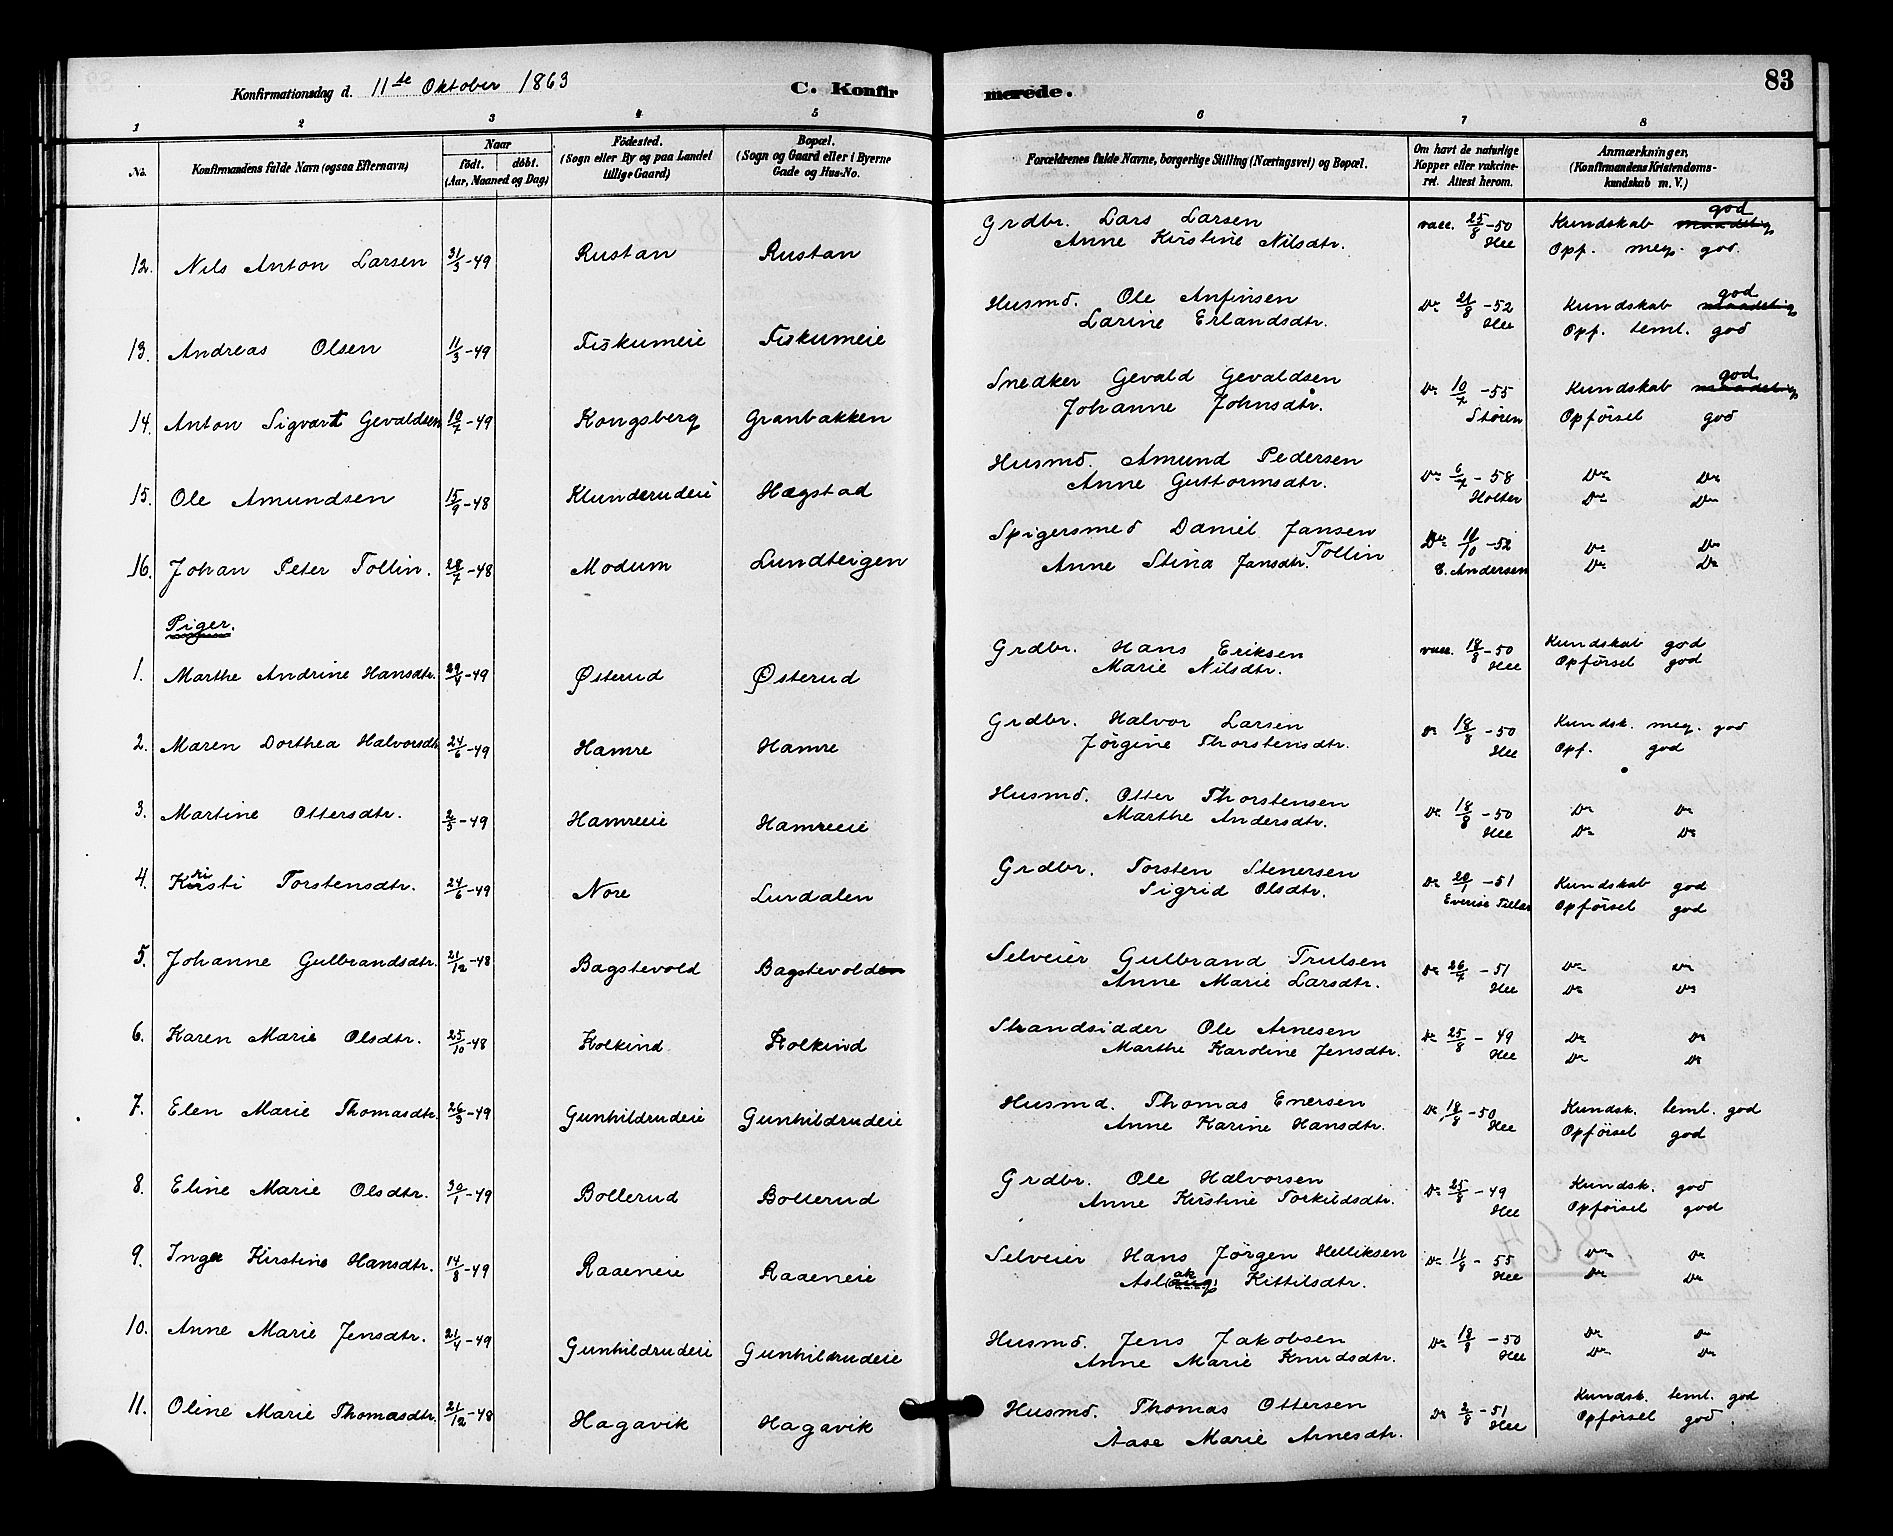 Konfirmationsdag d. 11te Oktober 1863 C. Konfirmerede. 83
1 2 3 4 5 6 7 8
No. Konfirmandens fulde Navn (ogsaa Efternavn) Naar født. døbt. (Aar, Maaned og Dag) Fødested. (Sogn eller By og paa Landet tillige Gaard) Bopæl. (Sogn og Gaard eller i Byerne Gade og Hus-No. Forældrenes fulde Navne, borgerlige Stilling (Næringsvei) og Bopæl. Om havt de naturlige Kopper eller vakcineret. Attest herom. Anmærkninger, (Konfirmandens Kristendomskundskab m. V.)
Grdbr. Lars Larsen vacc. 25/8-50 Kundskab maadelig god
12. Nils Anton Larsen 31/3-49 Rustan Rustan Anne Kirstine Nilsdtr. Hee Opf. meg. god.
Husmd. Ole Anfinsen Do 21/8-52 Kundskab maadelig god
13. Andreas Olsen 11/3-49 Fiskumeie Fiskumeie Larine Erlandsdtr. Hee Opf. teml. god
Snedker Gevald Gevaldsen Do 10/7-55 Kundskab maadelig god
14. Anton Sigvart Gevaldsen 10/7-49 Kongsberg Granbakken Johanne Johnsdtr. Støren Opførsel god
Husmd. Amund Pedersen Do 6/7-58 Do Do
15. Ole Amundsen 15/9-48 Klunderudeie Hægstad Anne Guttormsdtr. Holter Do Do
Spigersmed Daniel Jansen Tollin Do 11/10-52 Do Do
16. Johan Peter Tollin. 28/7-48 Modum Lundteigen Anne Stina Jansdtr. C. Andersen Do Do
Piger.
Grdbr. Hans Eriksen vacc. 18/8-50 Kundskab god
1. Marthe Andrine Hansdtr. 29/4-49 Østerud Østerud Marie Nilsdtr. Hee Opførsel god
Grdbr. Halvor Larsen Do 18/8-50 Kundsk. meg. god
2. Maren Dorthea Halvorsdtr 24/6-49 Hamre Hamre Jørgine Thorstensdtr. Hee Opf. god
Husmd. Otter Thorstensen Do 18/8-50 Do Do
3. Martine Ottersdtr. 2/5-49 Hamreeie Hamreeie Marthe Andersdtr. Hee Do Do
Grdbr. Torsten Stenersen Do 20/1-51 Kundskab god
4. Kirsti Torstensdtr. 24/6-49 Nore Lurdalen Sigrid Olsdtr. Opførsel god
Selveier Gulbrand Trulsen Do 26/7-51 Do Do
5. Johanne Gulbrandsdtr. 21/12-48 Bagstevold Bagstevold Anne Marie Larsdtr. Hee Do Do
Strandsidder Ole Arnesen Do 25/8-49 Do Do
6. Karen Marie Olsdtr. 25/10-48 Kolkind Kolkind Marthe Karoline Jensdtr. Hee Do Do
Husmd. Thomas Enersen Do 18/8-50 Kundsk. teml. god
7. Elen Marie Thomasdtr. 26/3-49 Gunhildrudeie Gunhildrudeie Anne Karine Hansdtr. Hee Opførsel god
Grdbr. Ole Halvorsen Do 25/8-49 Kundsk. god
8. Eline Marie Olsdtr. 30/1-49 Bollerud Bollerud Anne Kirstine Torkildsdtr. Hee Opførsel god
Selveier Hans Jørgen Helliksen Do 11/8-55 Do Do
9. Inga Kirstine Hansdtr. 14/8-49 Raaeneie Raaeneie Aslaug ak Kittilsdtr. Hee Do Do
Husmd. Jens Jakobsen Do 18/8-50 Do Do
10. Anne Marie Jensdtr. 21/4-49 Gunhildrudeie Gunhildrudeie Anne Marie Knudsdtr. Hee Do Do
Husmd. Thomas Ottersen Do 2/8-51 Kundsk. teml. god
11. Oline Marie Thomasdtr. 21/12-48 Hagavik Hagavik Aase Marie Arnesdtr. Hee Opførsel god.